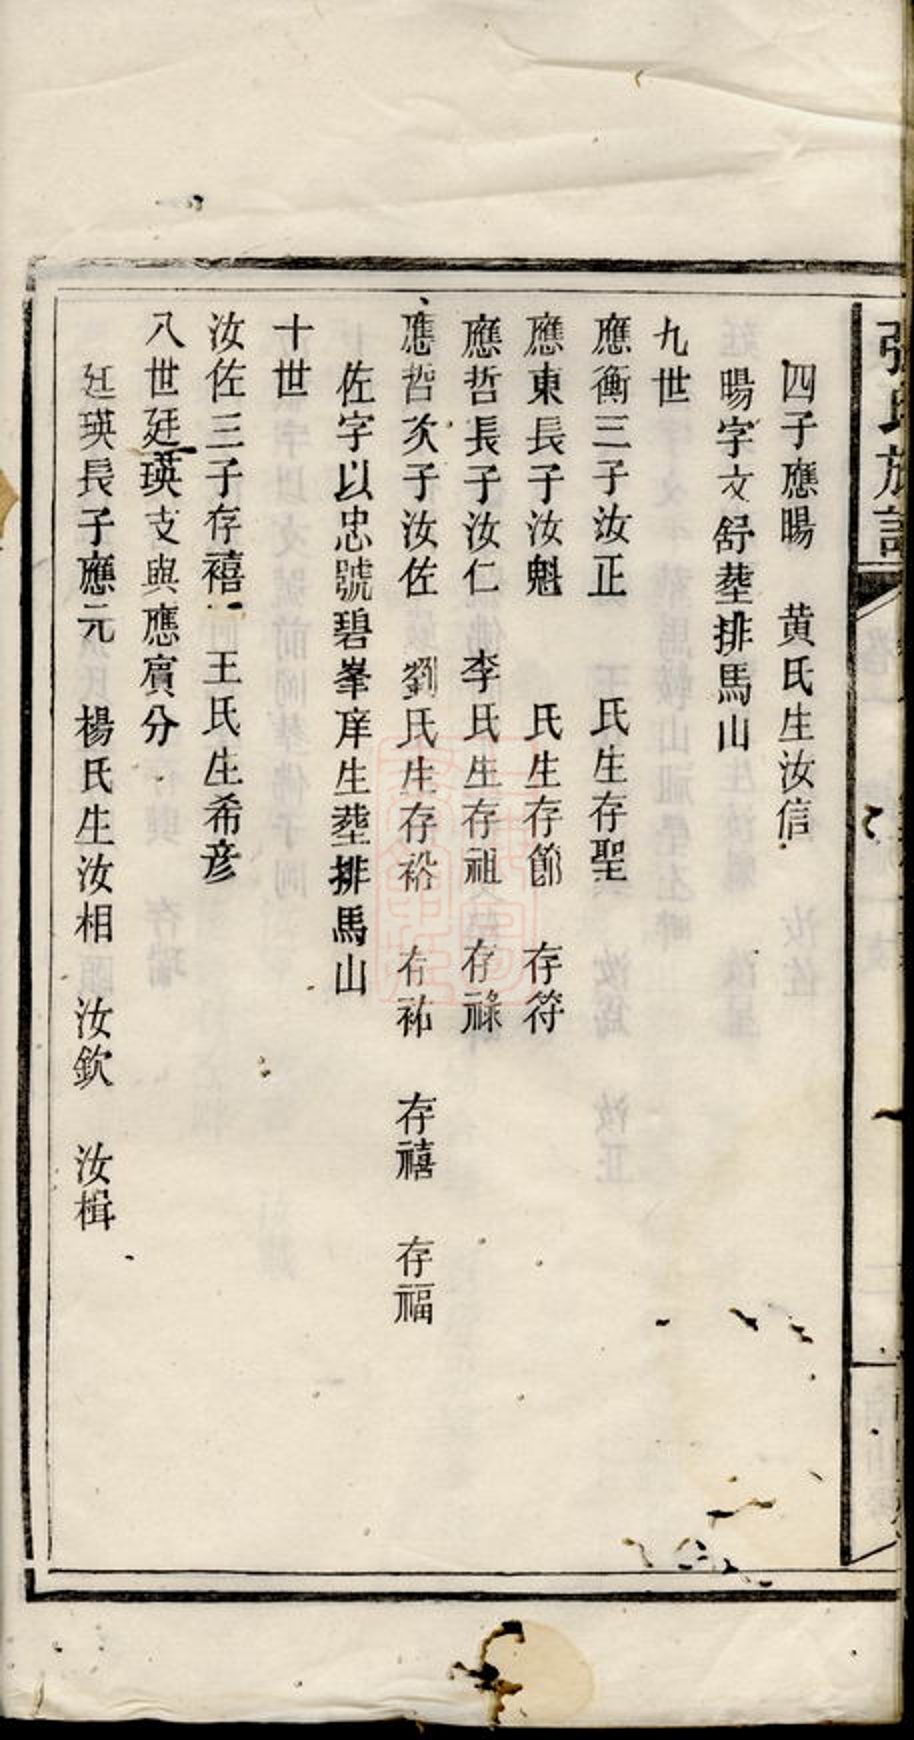 張氏族譜
四子應暘　黄氏生汝信
暘字文舒塟排馬山
九世
應衡三子汝正　　氏生存聖
應東長子汝魁　　氏生存節　存符
應哲長子汝仁　李氏生存祖　存祿
應哲次子汝佐　劉氏生存裕　存祐　存禧　存福
佐字以忠號碧峯庠生塟排馬山
十世
汝佐三子存禧　王氏生希彦
八世廷瑛支與應賓分
廷瑛長子應元　楊氏生汝相　汝欽　汝楫